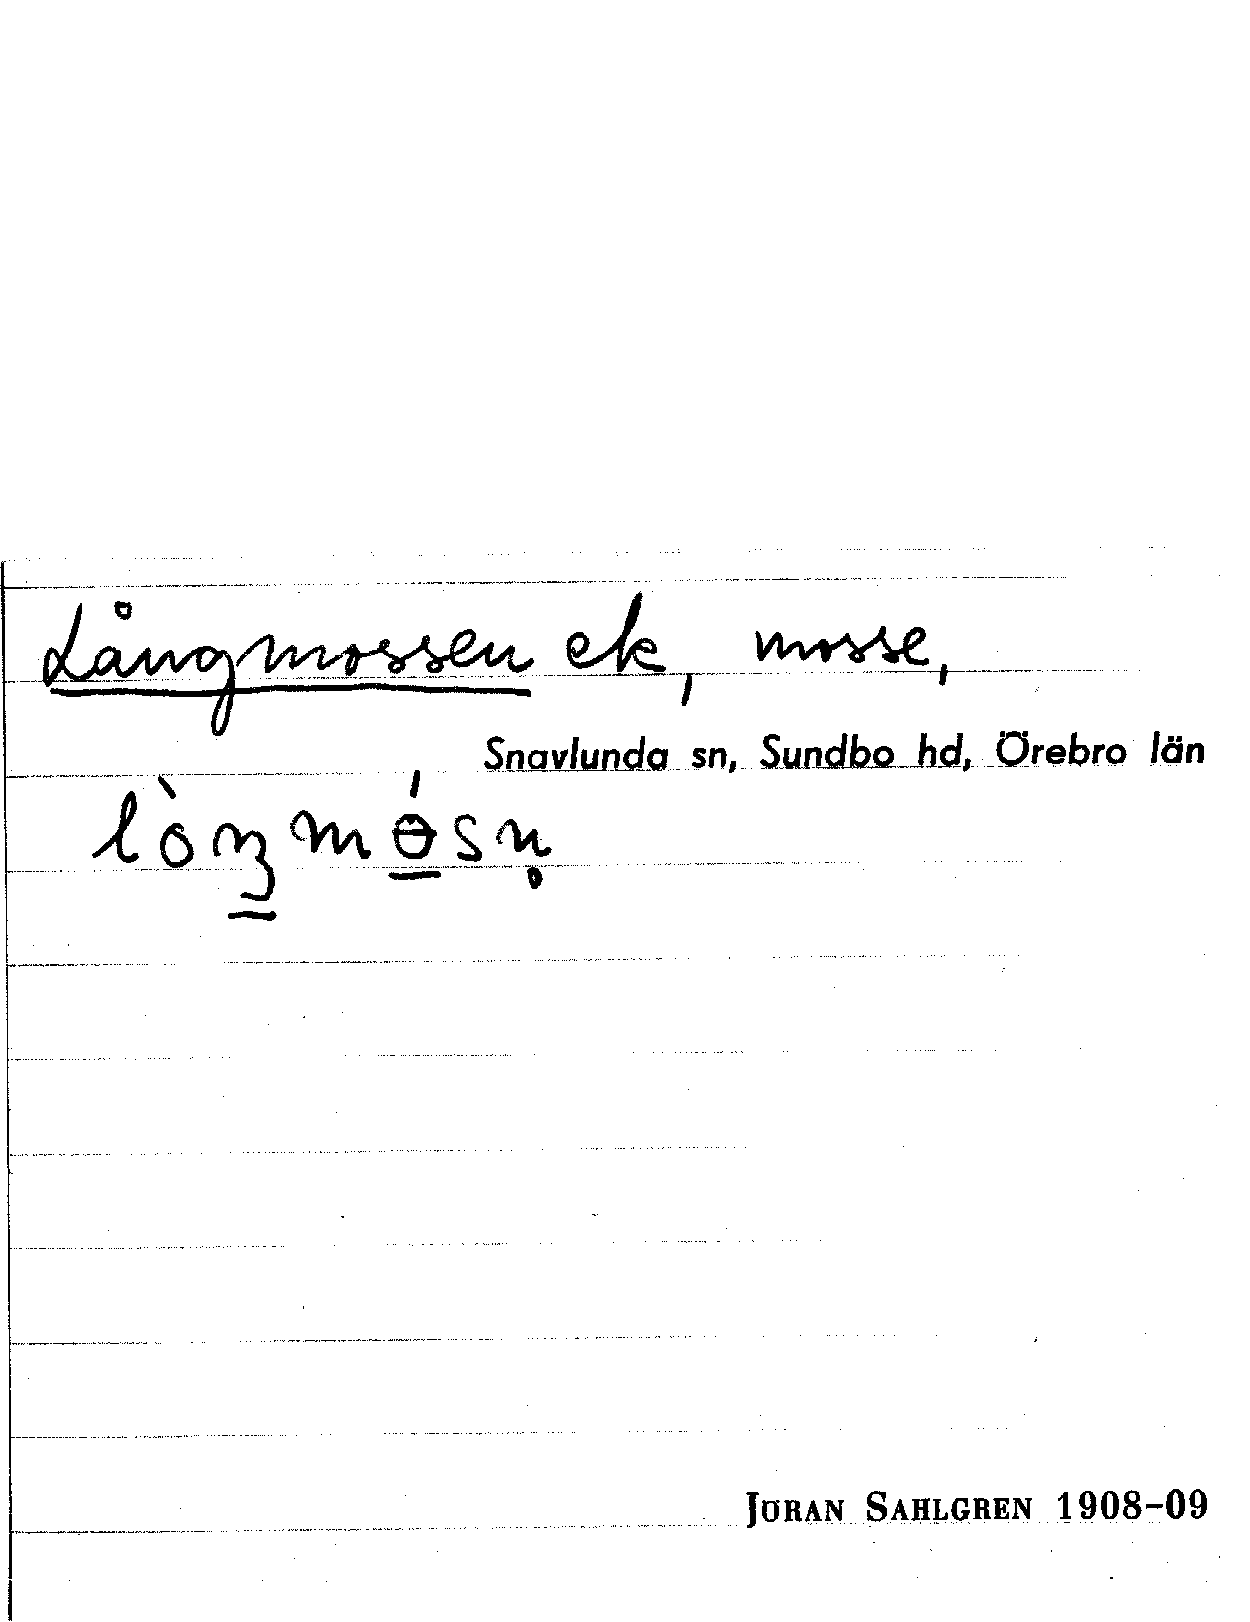 Långmossen ek, mosse,
Snavlunda sn, Sundbo hd, Örebro län
lòŋmɵ́sn̥
JÖRAN SAHLGREN 1908–09